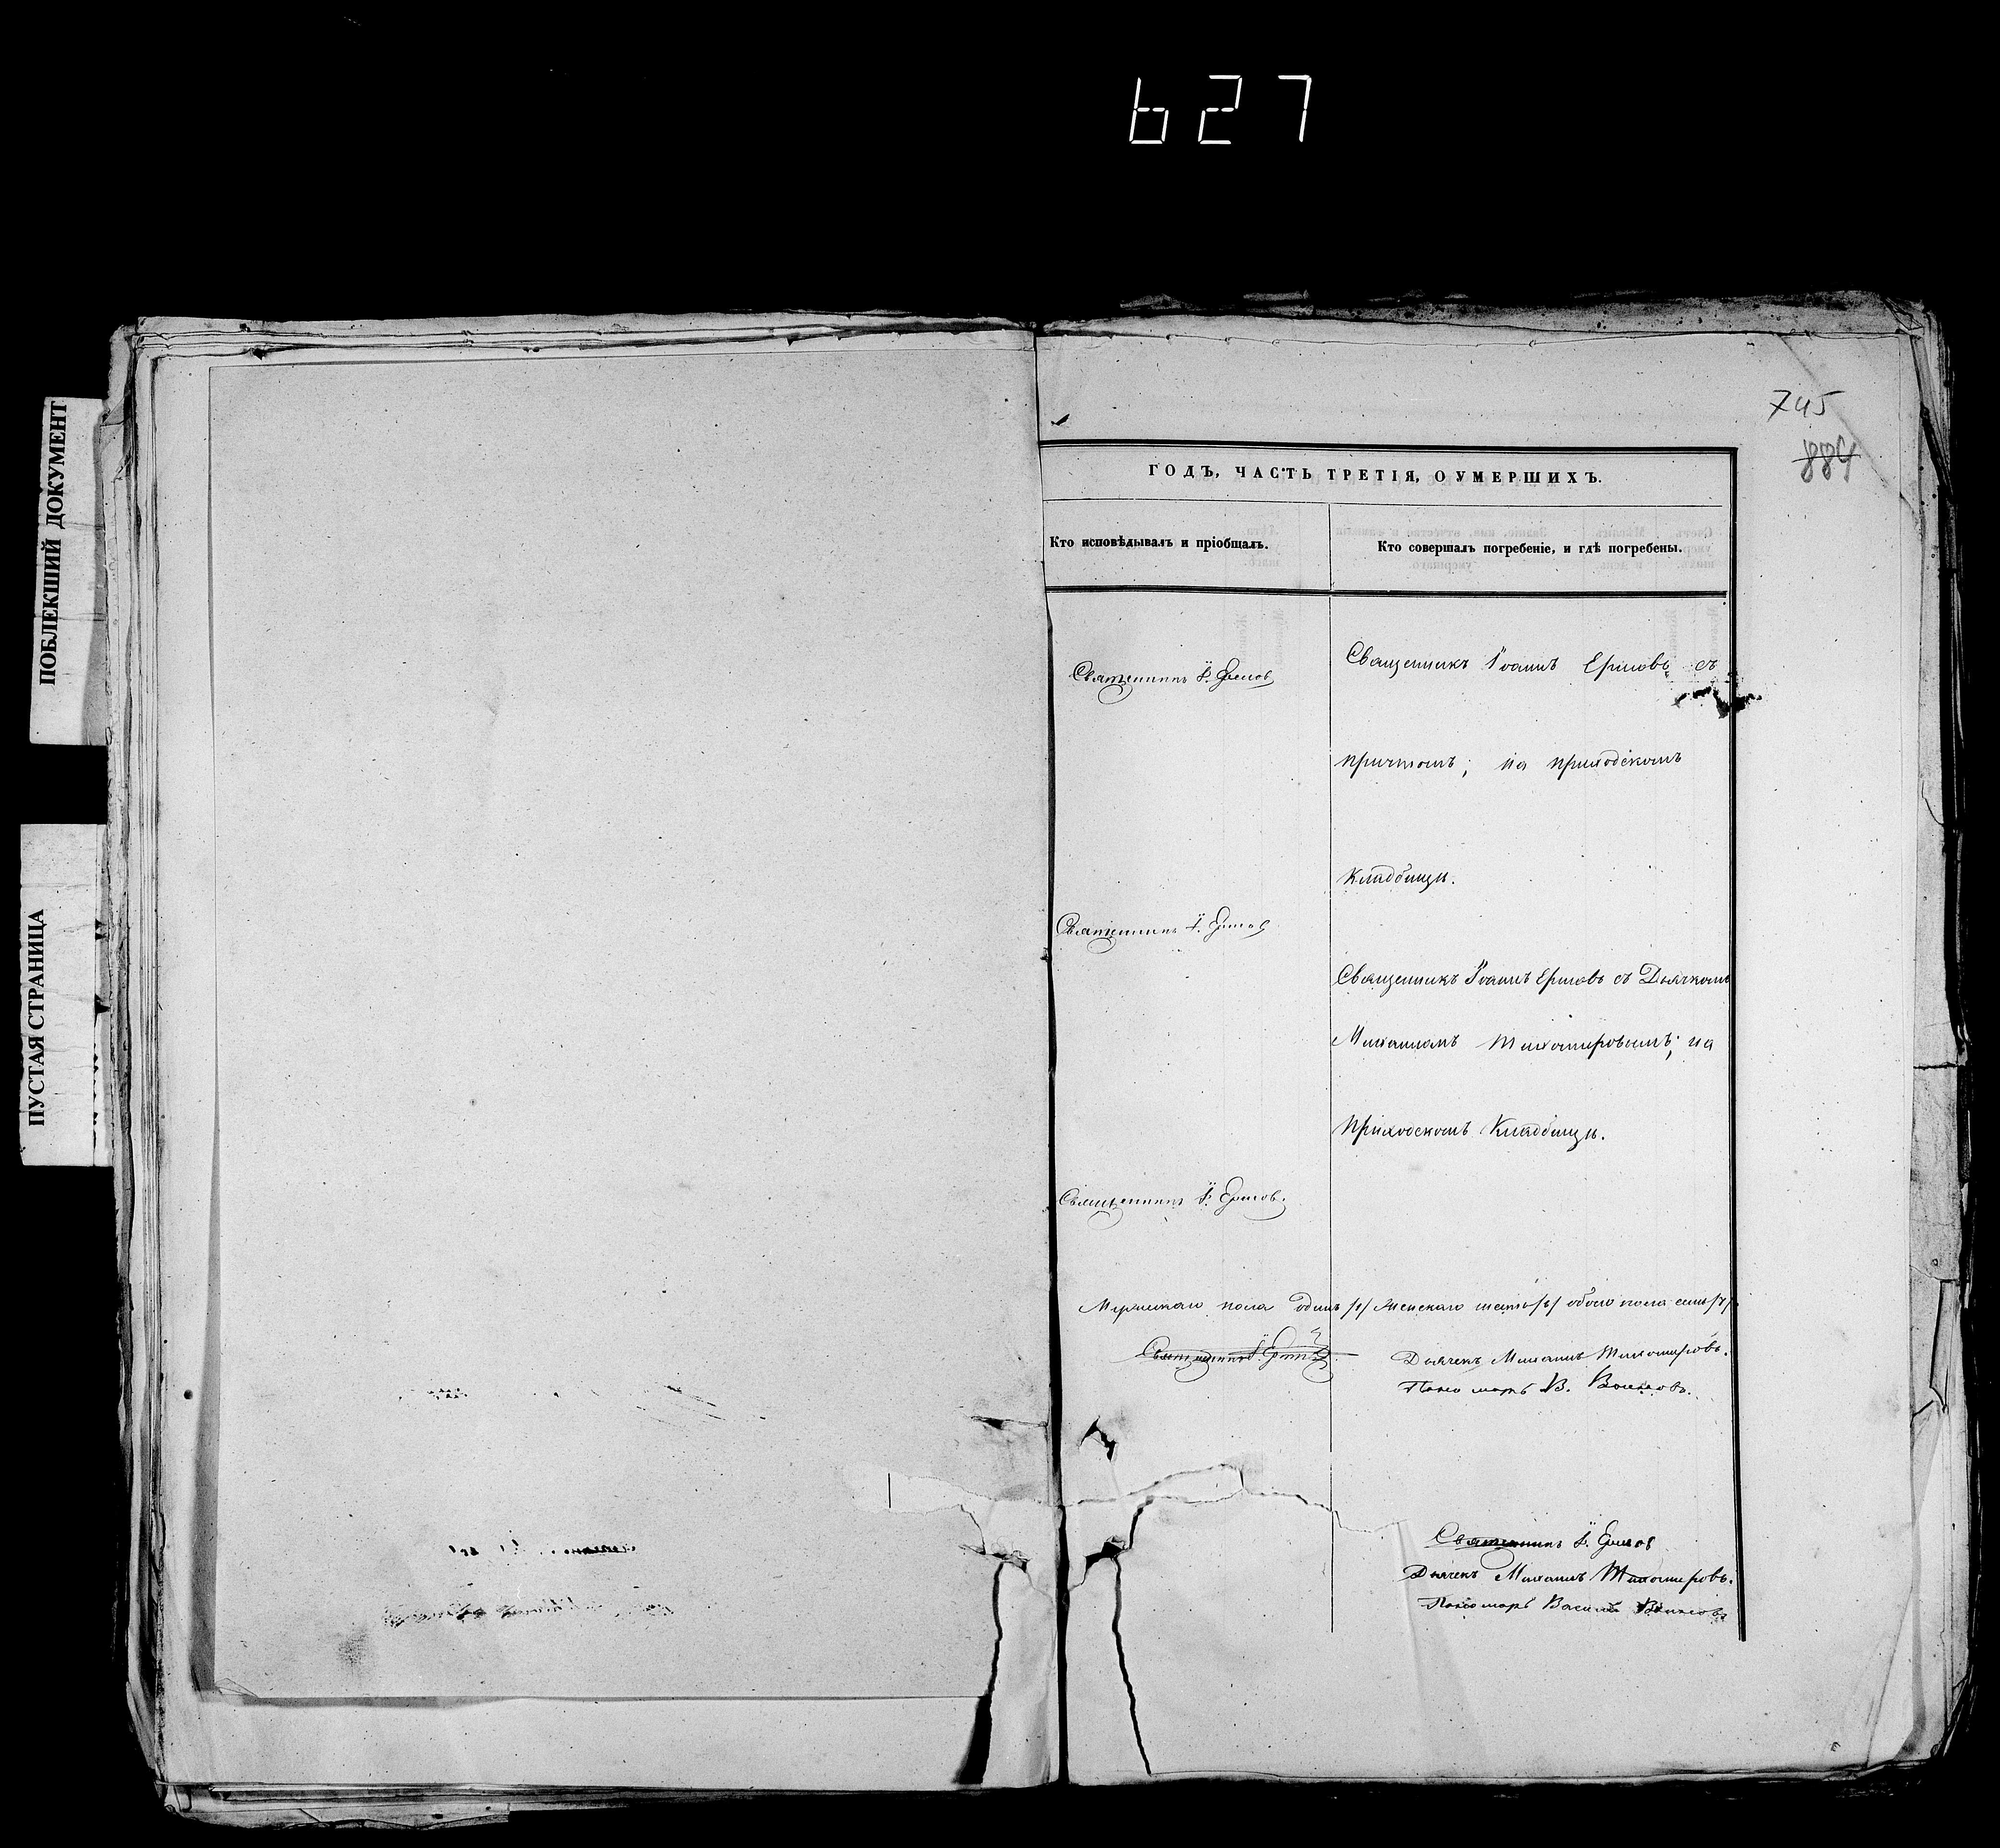 627
ПОБЛЕКШИЙ ДОКУМЕНТ
ПУСТАЯ СТРАНИЦА
745
884
ГОДЪ, ЧАСТЬ ТРЕТІЯ, О УМЕРШИХЪ.
Кто исповѣдывалъ и пріобщалъ.
Кто совершалъ погребеніе, и гдѣ погребены.
Священникъ І. Ершов
Священникъ Іоаннъ Ершовъ съ
причтомъ; на приходскомъ
Кладбищѣ.
Священникъ І. Ершов
Священникъ Іоаннъ Ершовъ съ Дьячкомъ
Михаиломъ Тихомировымъ; на
приходскомъ Кладбищѣ.
Священникъ І. Ершов.
Мужескаго пола одинъ /1/ Женскаго шесть /6/ обоего пола семь /7/
Священникъ І. Ершов
Дьячекъ Михаилъ Тихомировъ.
Пономарь В.
Священникъ І. Ершов
Дьячекъ Михаилъ Тихомировъ.
Пономарь Василій